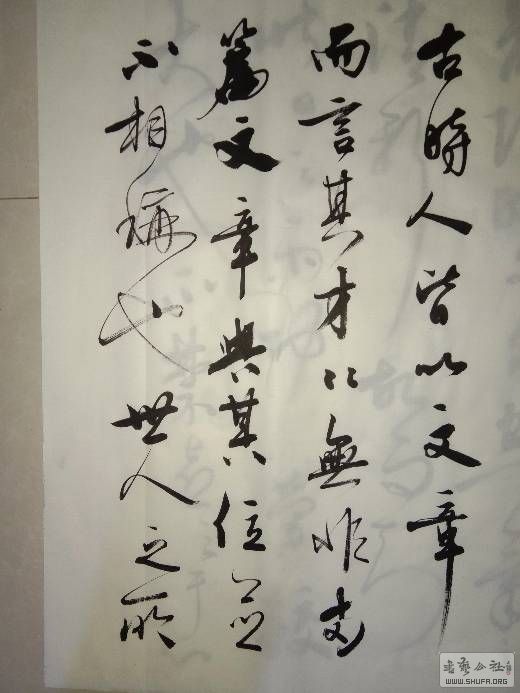 古時人皆以文章
而言其才無非
篇文章與其位並
不相稱也世人之所
书艺公社
WWW.SHUFA.ORG